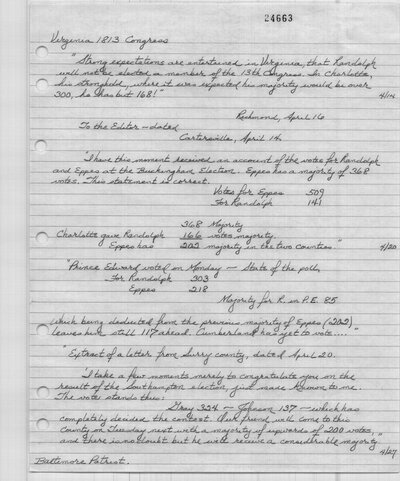 24663
Virginia 1813 Congress
"Strong expectations are entertained in Virginia, that Randolph
will not be elected a member of the 13th Congress. In Charlotte,
his stronghold, where it was expected his majority would be over
300, he has but 168!" 4/14
Richmond, April 16
To the Editor - dated
Cartersville, April 14
"I have this moment received an account of the votes for Randolph
and Eppes at the Buckingham Election. Eppes has a majority of 368
votes. This statement is correct.
Votes for Eppes 509
For Randolph 141
368 Majority
Charlotte gave Randolph 166 votes majority.
Eppes has 202 majority in the two Counties." 4/20
"Prince Edward voted on Monday - State of the poll,
For Randolph 303
Eppes 218
Majority for R. in P.E. 85
which being deducted from the previous majority of Eppes (202)
leaves him still 117 ahead. Cumberland has yet to vote...."
"Extract of a letter from Surry county, dated April 20.
I take a few moments merely to congratulate you on the
result of the Southampton election, just made known to me.
The vote stands thus:
Gray 324 - Johnson 137 - which has
completely decided the contest. Our friend will come to this
County on Tuesday next with a majority of upwards of 200 votes,
and there is no doubt but he will receive a considerable majority" 4/27
Baltimore Patriot.